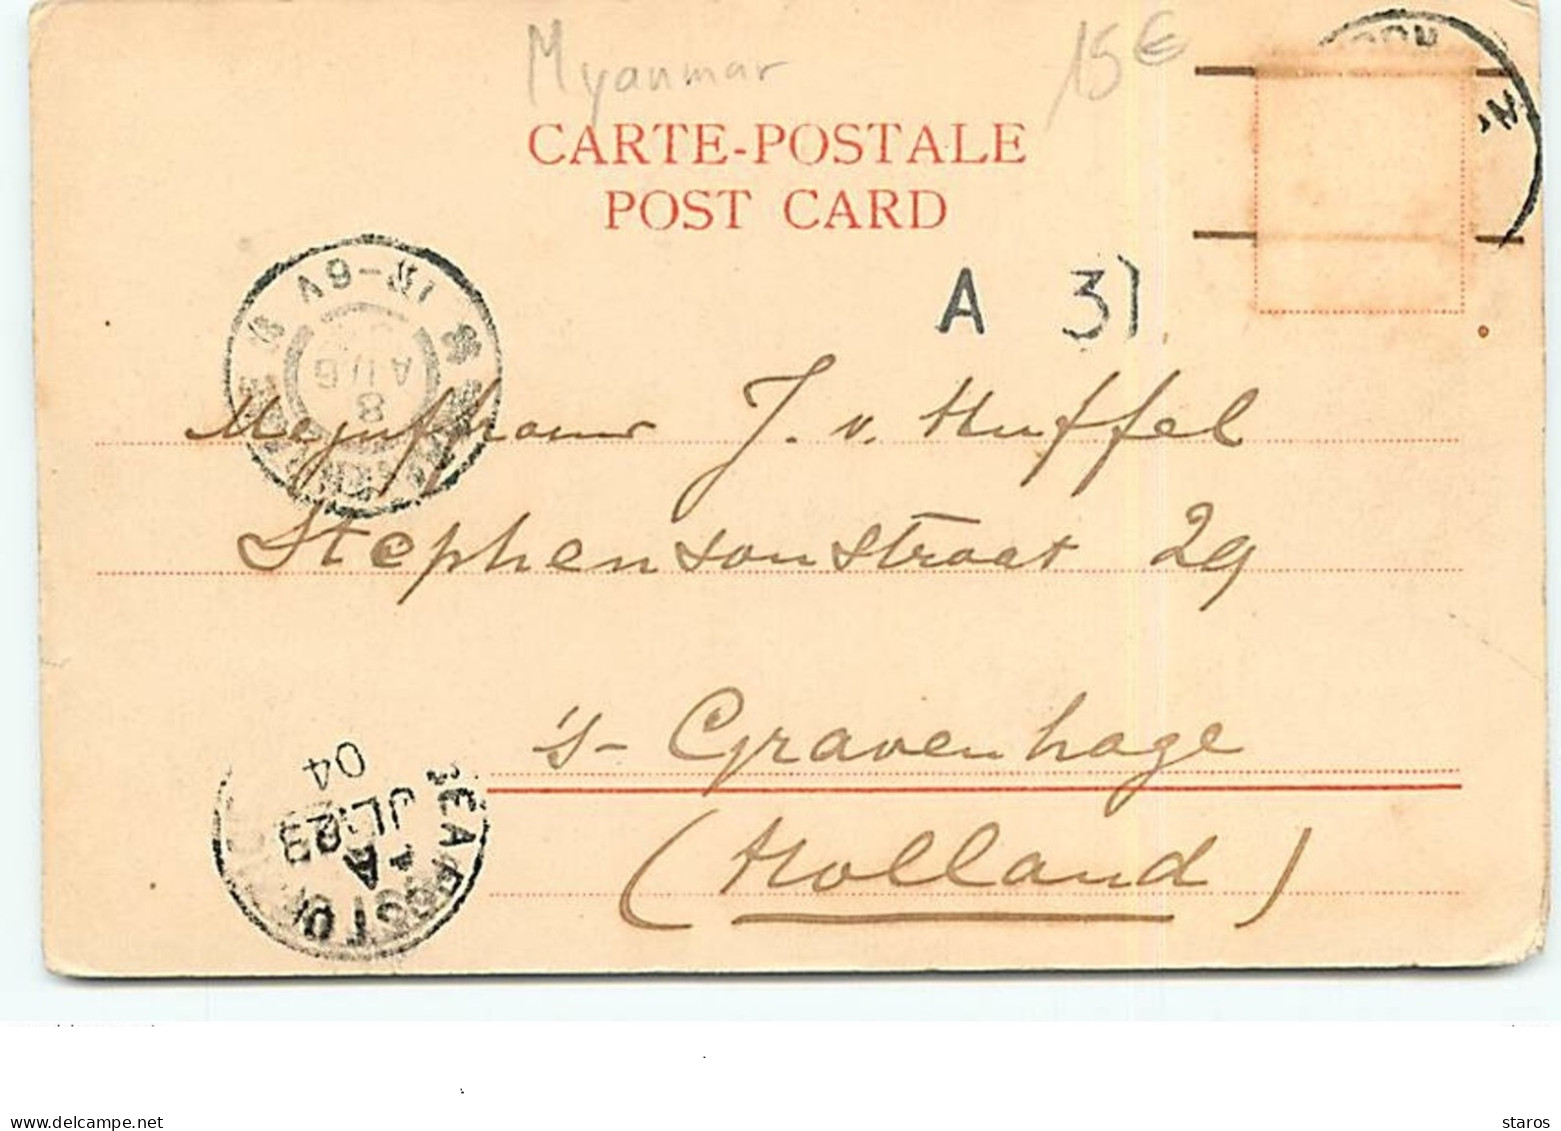 Myanmar 15€
CARTE-POSTALE
POST CARD
A 31
8
AUG
Mejuffrouw J. v. Huffel
Stephensonstraat 29
's-Gravenhage
(Holland)
SEA POST OF
A
JL 23
04
delcampe.net
staros